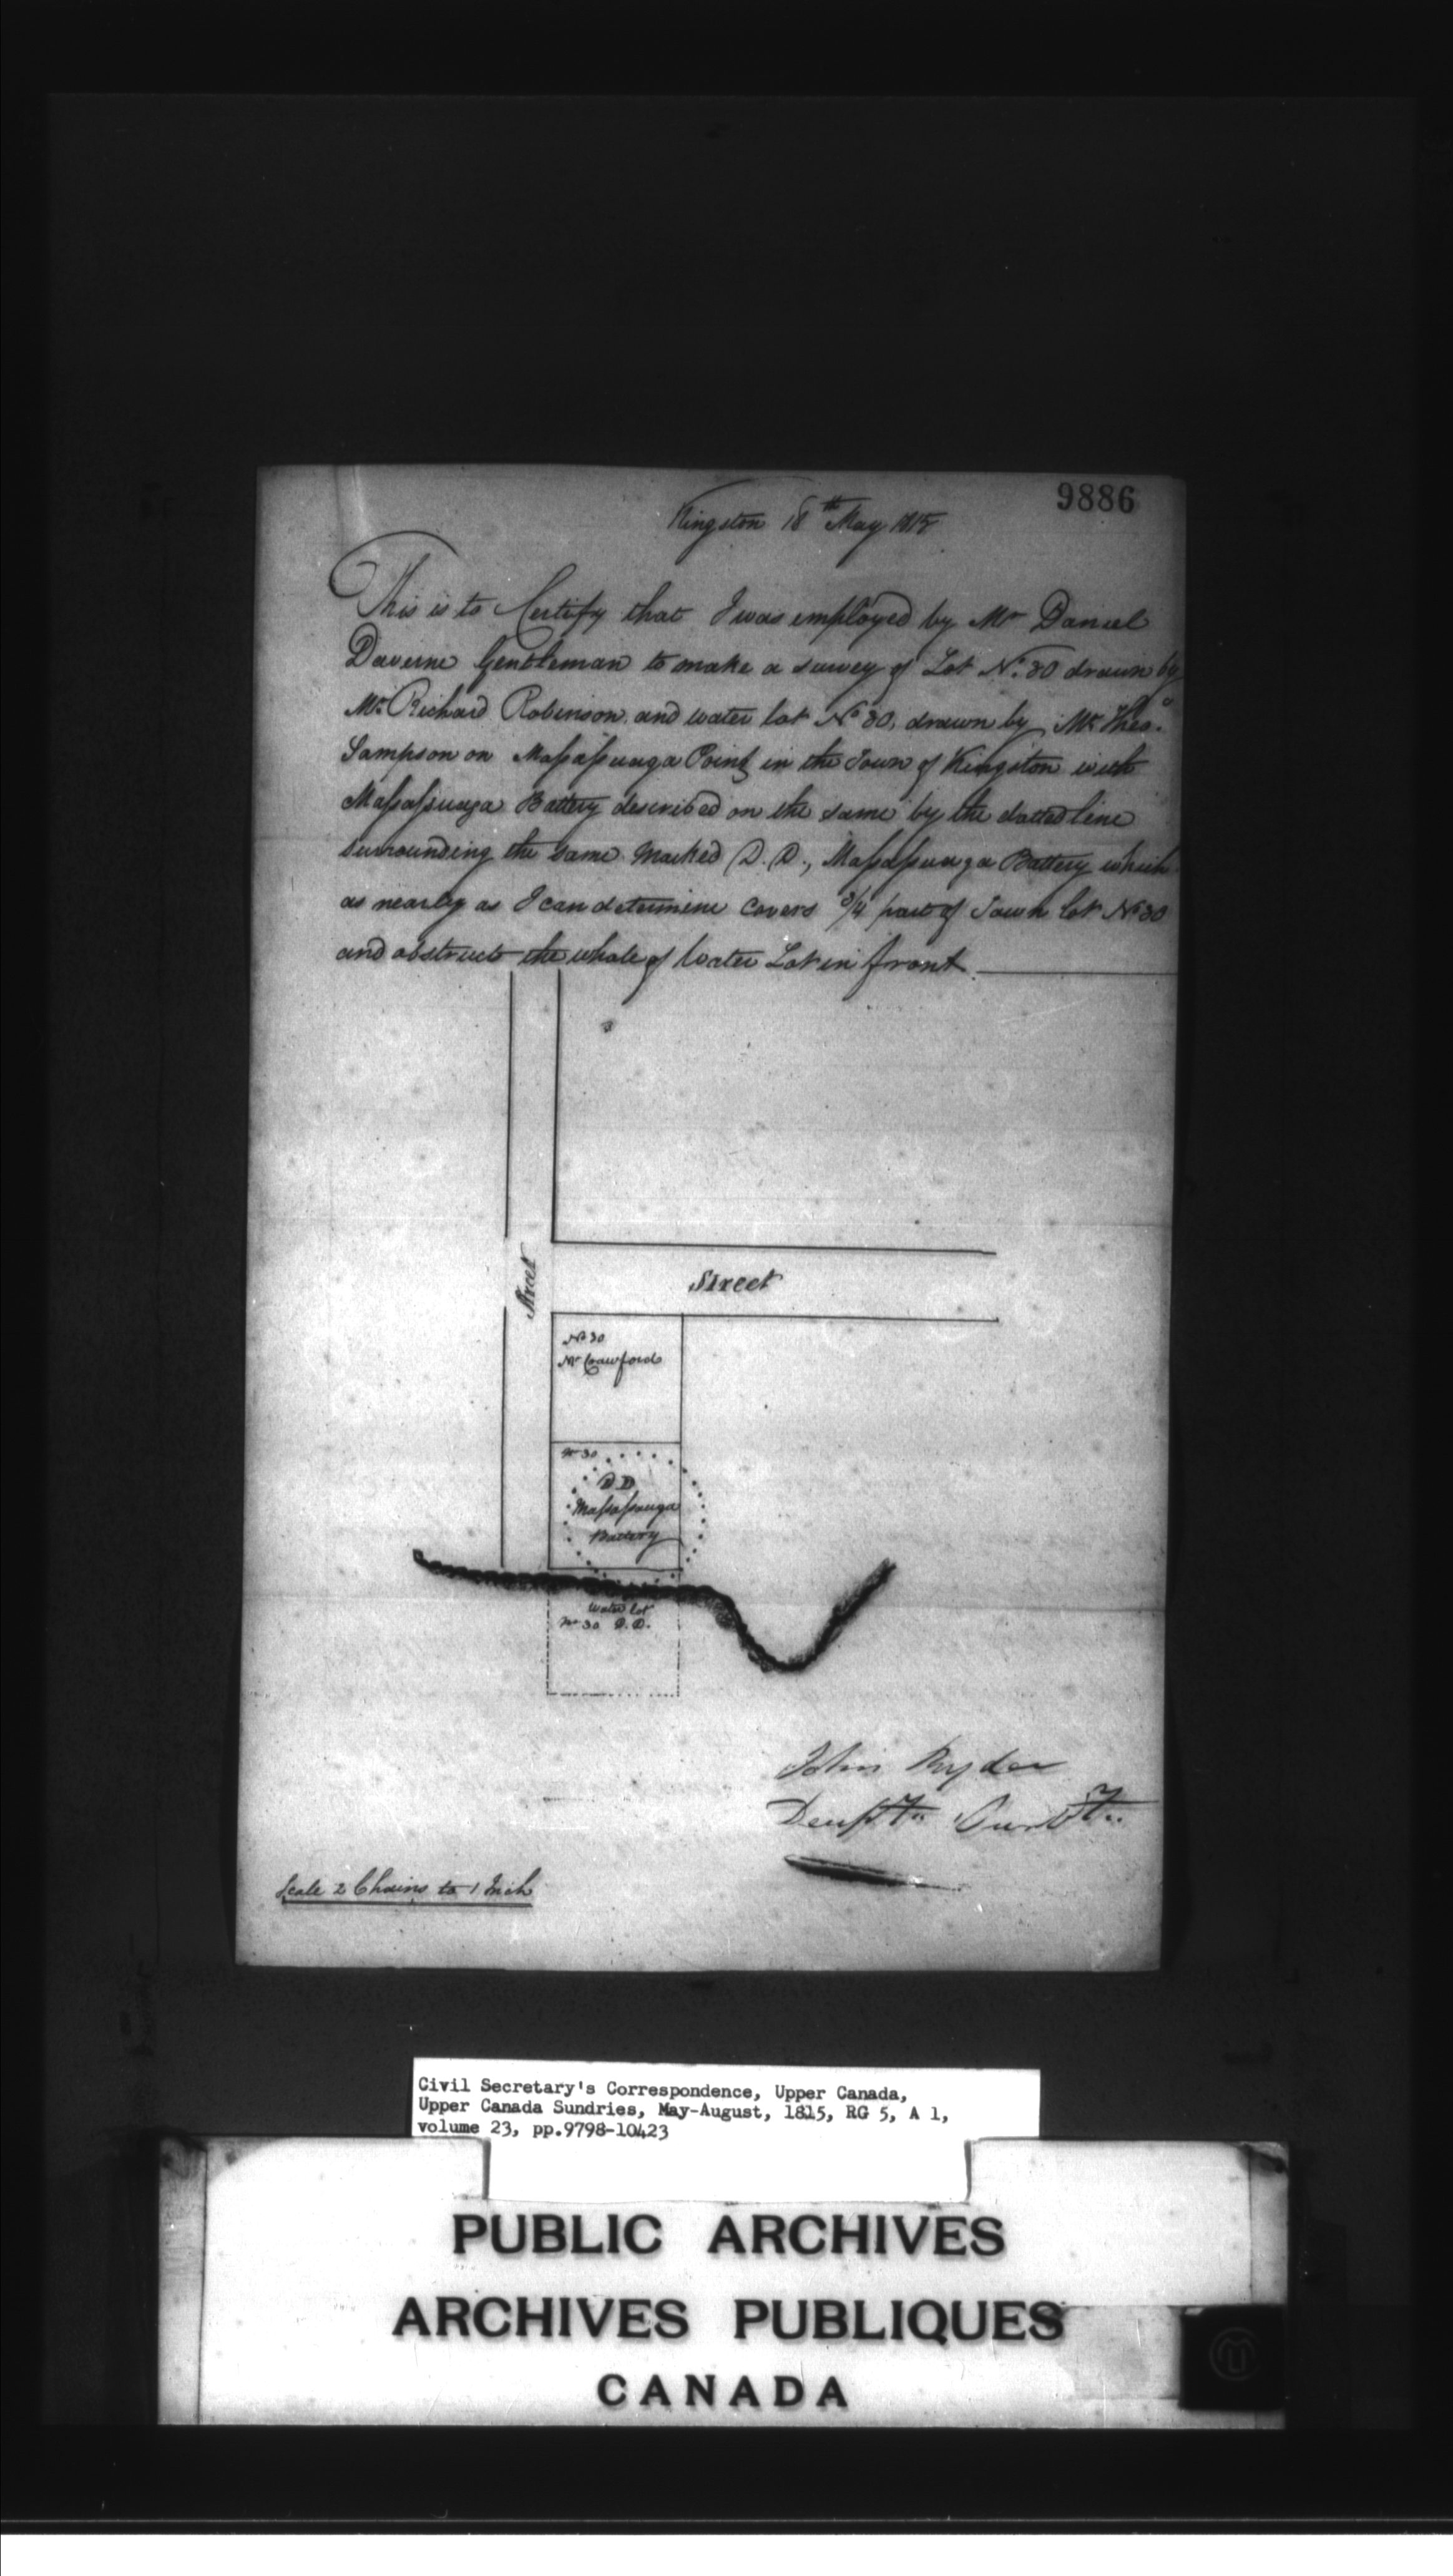 9886
Kingston 18th May 1815
This is to Certify that I was employed by Mr Daniel
Daverne Gentleman to make a survey of Lot No. 30 drawn by
Mr. Richard Robinson and water lot No 30, drawn by Mr. Theo.
Sampson on Massassauga Point in the Town of Kingston with
Massassauga Battery described on the same by the dotted line
surrounding the same Marked D. D., Massassauga Battery which
as nearly as I can determine Covers 3/4 part of Town lot No 30
and obstructs the whole of Water Lot in front
Street
Street
No 30
Mr Crawford
No 30
D D
Massassauga
Battery
Water lot
No 30 D. D.
John Ryder
Scale 2 Chains to 1 Inch
Civil Secretary's Correspondence, Upper Canada,
Upper Canada Sundries, May-August, 1815, RG 5, A 1,
volume 23, pp.9798-10423
PUBLIC ARCHIVES
ARCHIVES PUBLIQUES
CANADA